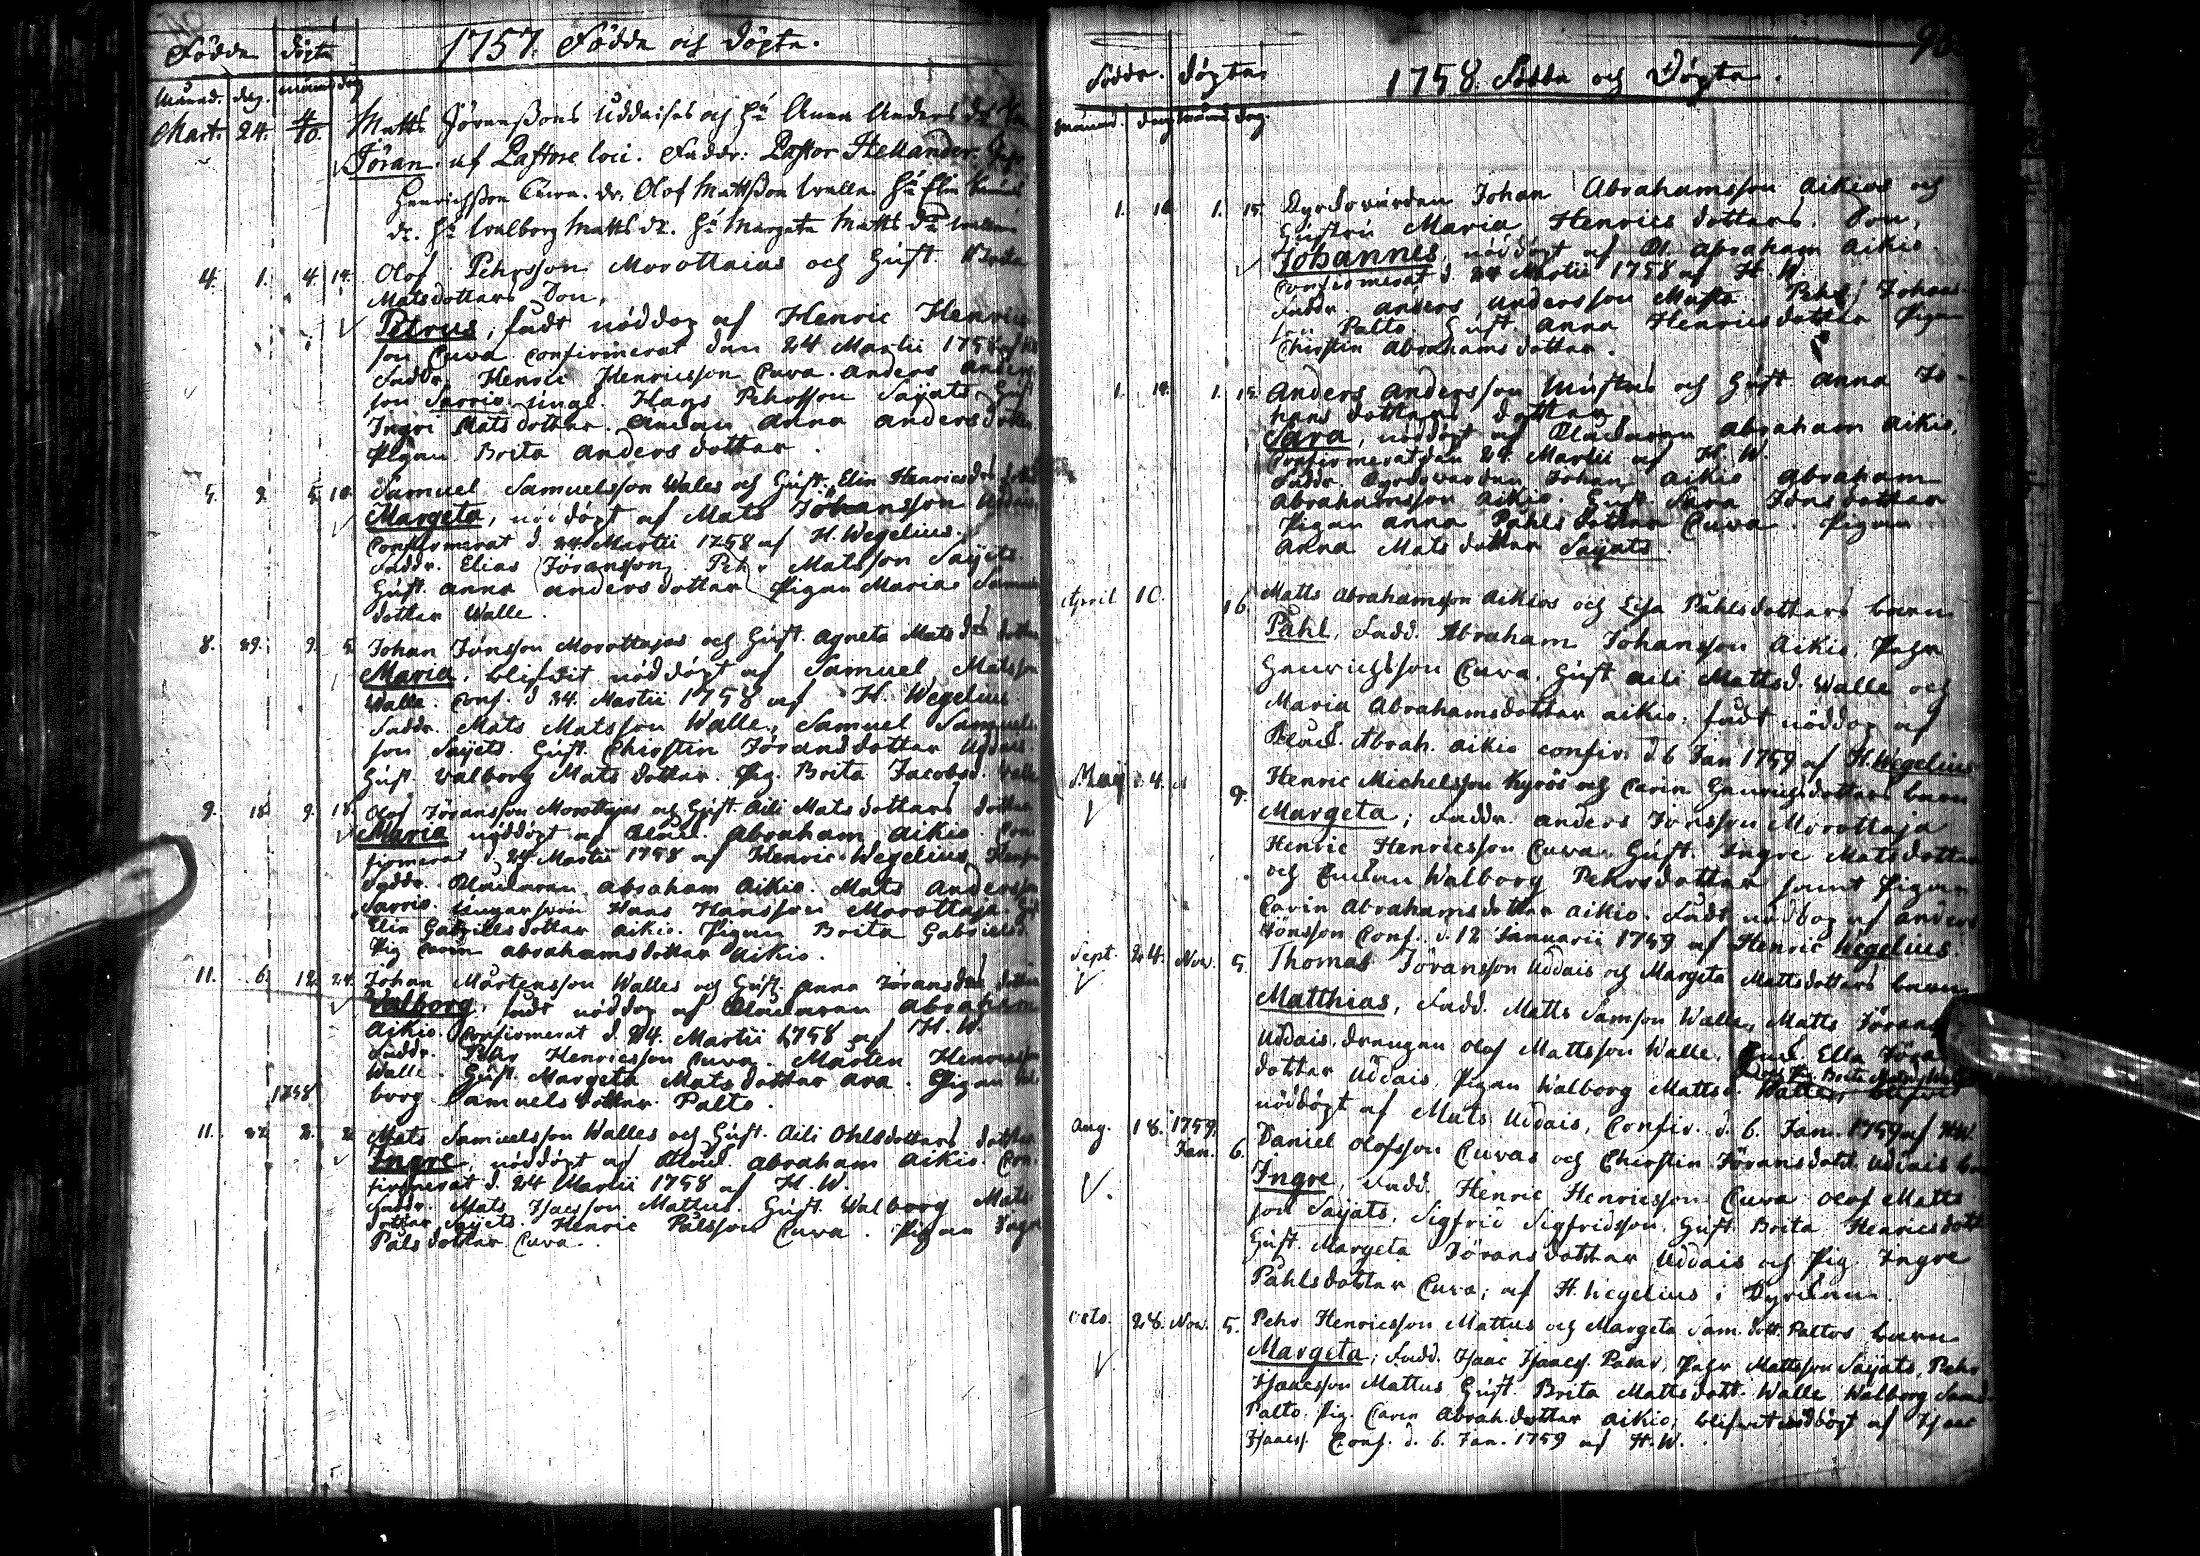 1757. Födde och döpte.
Födde döpte
Månad. dag. månad dag
Mart. 24. 4/10. Matts Jöranssons Uddaises och Hu Anna Anders dr
Jöran. af Pastore loci. Faddr: Pastor Hellander.
Henrichsson Cuva. dr. Olof Mattsson Walle. Hu Elin
dr. Hu Walborg Matts dr. Hu Margeta Matts dr Walle
4. 1. 4. 14. Olof Pehrsson Morottaias och Hust.
Matsdotters Son,
Petrus, fådt nöddop af Henric Henrics
son Cuva confirmerat den 24 Martii 1758 af
Faddr. Henric Henricsson Cuva. Anders Anders
son Sarrio. ungl. Hans Pehrsson Sayets. Hust
Ingri Matsdotter. Enkan Anna Andersdotter
Pigan Brita Andersdotter.
5. 2. 5. 10. Samuel Samuelsson Wales och Hust. Elin Henricsdrs
Margeta, nöddöpt af Mats Johansson Uddais
Confirmerat d. 24 Martii 1758 af H. Wegelius.
Faddr. Elias Jöransson, Pehr Matsson Sayets.
Hust. Anna Andersdotter Pigan Maria Samuels
dotter Walle.
8. 29. 9. 5. Johan Jönsson Morottajas och Hust. Agneta Mats drs dotter
Maria, blifvit nöddöpt af Samuel Matsson
Walle. Conf. d 24. Martii 1758 af H. Wegelius
Faddr. Mats Matsson Walle, Samuel Samuels
son Sayets. Hust. Chirstin Jöransdotter Uddais.
Hust. Walborg Matsdotter. Pig. Brita Jacobsd. Walle
9. 18. 9. 18. Olof Jöransson Morottajas och Hust. Aili Matsdotters dotter
Maria nöddöpt af Klock. Abraham Aikio. Con
firmerat d. 24 Martii 1758 af Henric Wegelius
Faddr. Klockaren Abraham Aikio. Mats Andersson
Sarrio. Ungersven Hans Hansson Morottaja.
Elin Gabrielsdotter Aikio. Pigan Brita Gabrielsd.
Pig Carin Abrahamsdotter Aikio.
11. 6. 12. 24. Johan Mårtensson Walles och Hust. Anna Jöransdrs dotter
Walborg, fådt nöddop af Klockaren Abraham
Aikio. Confirmerat d. 24. Martii 1758 af H. W.
Faddr. Pehr Henricsson Cuva. Mårten Henricsson
Walle. Hust. Margeta Matsdotter Ara. Pigan Wal
borg Samuelsdotter Palto.
1758
11. 27. 2. 2. Mats Samuelsson Walles och Hust. Aili Ohlsdotters dotter
Ingre, nöddöpt af Klock. Abraham Aikio. Con
firmerat d. 24 Martii 1758 af H. W.
Faddr. Mats Isacsson Mattus. Hust. Walborg Mats
dotter Sayets. Henric Pålsson Cuva. Pigan Ingre
Pålsdotter Cuva.
1758. Födde och Döpte.
Födde. döpte.
månad. dag månad dag.
1. 10. 1. 15. Kyrkovärden Johan Abrahamsson Aikios och
Hustru Maria Henricsdotters. Son,
Johannes, nöddöpt af Kl. Abraham Aikio.
Confirmerat d. 24 Martii 1758 af H. W.
Faddr. Anders Andersson Musta. Pehr Johans
son Palto. Hust. Anna Henricsdotter Pigan
Chirstin Abrahamsdotter.
1. 12. 1. 15. Anders Andersson Mustas och Hust Anna Jo-
hansdotters dotter,
Sara, nöddöpt af Klockaren Abraham Aikio.
Confirmerat den 24. Martii af H. W.
Faddr. Kyrkovärden Johan Aikio Abraham
Abrahamsson Aikio. Hust. Sara Jönsdotter
Pigan Anna Påhlsdotter Cuva. Pigan
Anna Matsdotter Sayats.
April 10. 16. Matts Abrahamsson Aikios och Lisa Påhlsdotters barn
Påhl, Fadd. Abraham Johansson Aikio, Pehr
Henrichsson Cuva, Hust Aili Mattsd. Walle och
Maria Abrahamsdotter Aikio; fådt nöddop af
Klock. Abrah. Aikio confir. d 6 Jan 1759 af H. Wegelius
Maij 4. 9. Henric Michelsson Kyrös och Carin Henrichsdotters barn
Margeta; Faddr. Anders Jönsson Morottaja
Henric Henricsson Cuva. Hust. Ingre Matsdotter
och Enckan Walborg Pehrsdotter samt Pigan
Carin Abrahamsdotter Aikio. Fådt nöddop af Anders
Jönsson Conf. d. 12 Januarii 1759 af Henric Wegelius.
Sept. 24. Nov. 5. Thomas Jöransson Uddais och Margeta Mattsdotters barn
Matthias, Fadd. Matts Samson Walle, Matts Jörans
Uddais. Drengen Olof Mattsson Walle. Enck. Ella Jöra
dotter Uddais, Pigan Walborg Mattsd. Walle, blifvit
och Pig. Brita
nöddöpt af Mats Uddais, Confir. d. 6. Jan. 1759 af HW.
Aug. 18. 1759. Jan. 6. Daniel Olofsson Cuvas och Chirstin Jöransdott. Uddais barn
Ingre, Fadd. Henric Henricsson Cuva Olof Matts
son Sayats, Sigfrid Sigfridsson, Hust. Brita Henricsdott
Hust. Margeta Jöransdotter Uddais och Pig. Ingre
Påhlsdotter Cuva; af H. Wegelius i Kyrckan.
Octo. 28. Nov. 5. Pehr Henricsson Mattus och Margeta Sam. dott. Paltos barn
Margeta; Fadd. Isaac Isaacs. Padar, Pehr Mattsson Sayats, Pehr
Isaacsson Mattus Hust. Brita Mattsdott. Walle, Walborg Sams
Palto, Pig. Carin Abrah.dotter Aikio; blifvit nöddöpt af Isaac
Isaacs. Conf. d. 6. Jan. 1759 af H. W.